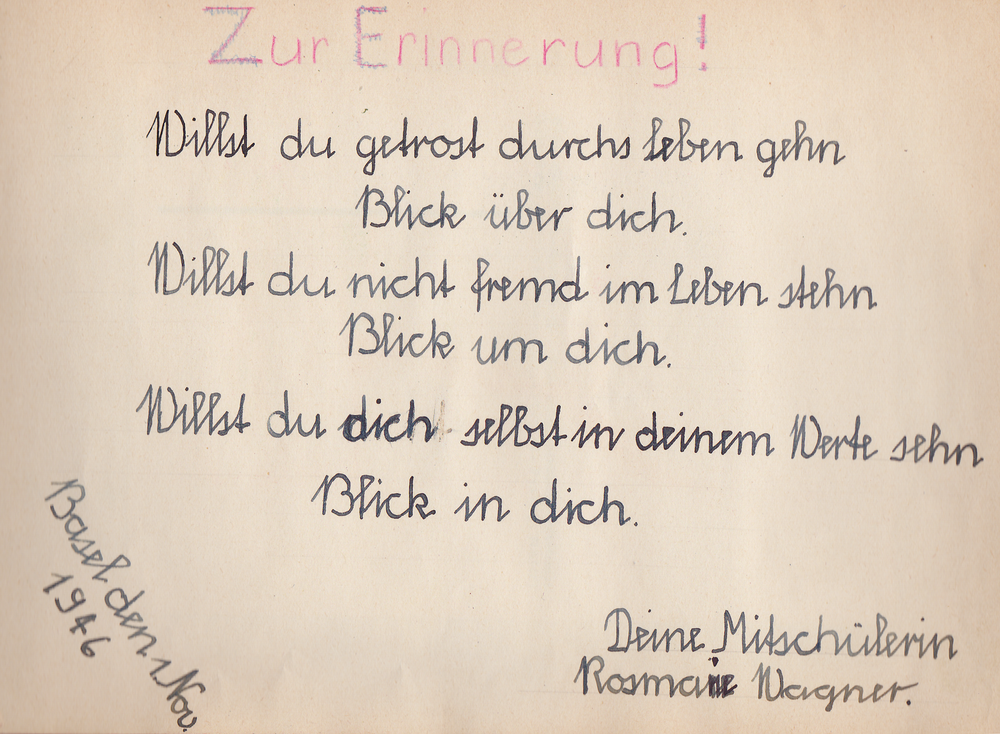 Zur Erinnerung!
Willst du getrost durchs leben gehn
Blick über dich.
Willst du nicht fremd im Leben stehn
Blick um dich.
Willst du dich selbst in deinem Werte sehn
Blick in dich.
Basel den 1 Nov.
1946
Deine Mitschülerin
Rosmarie Wagner.